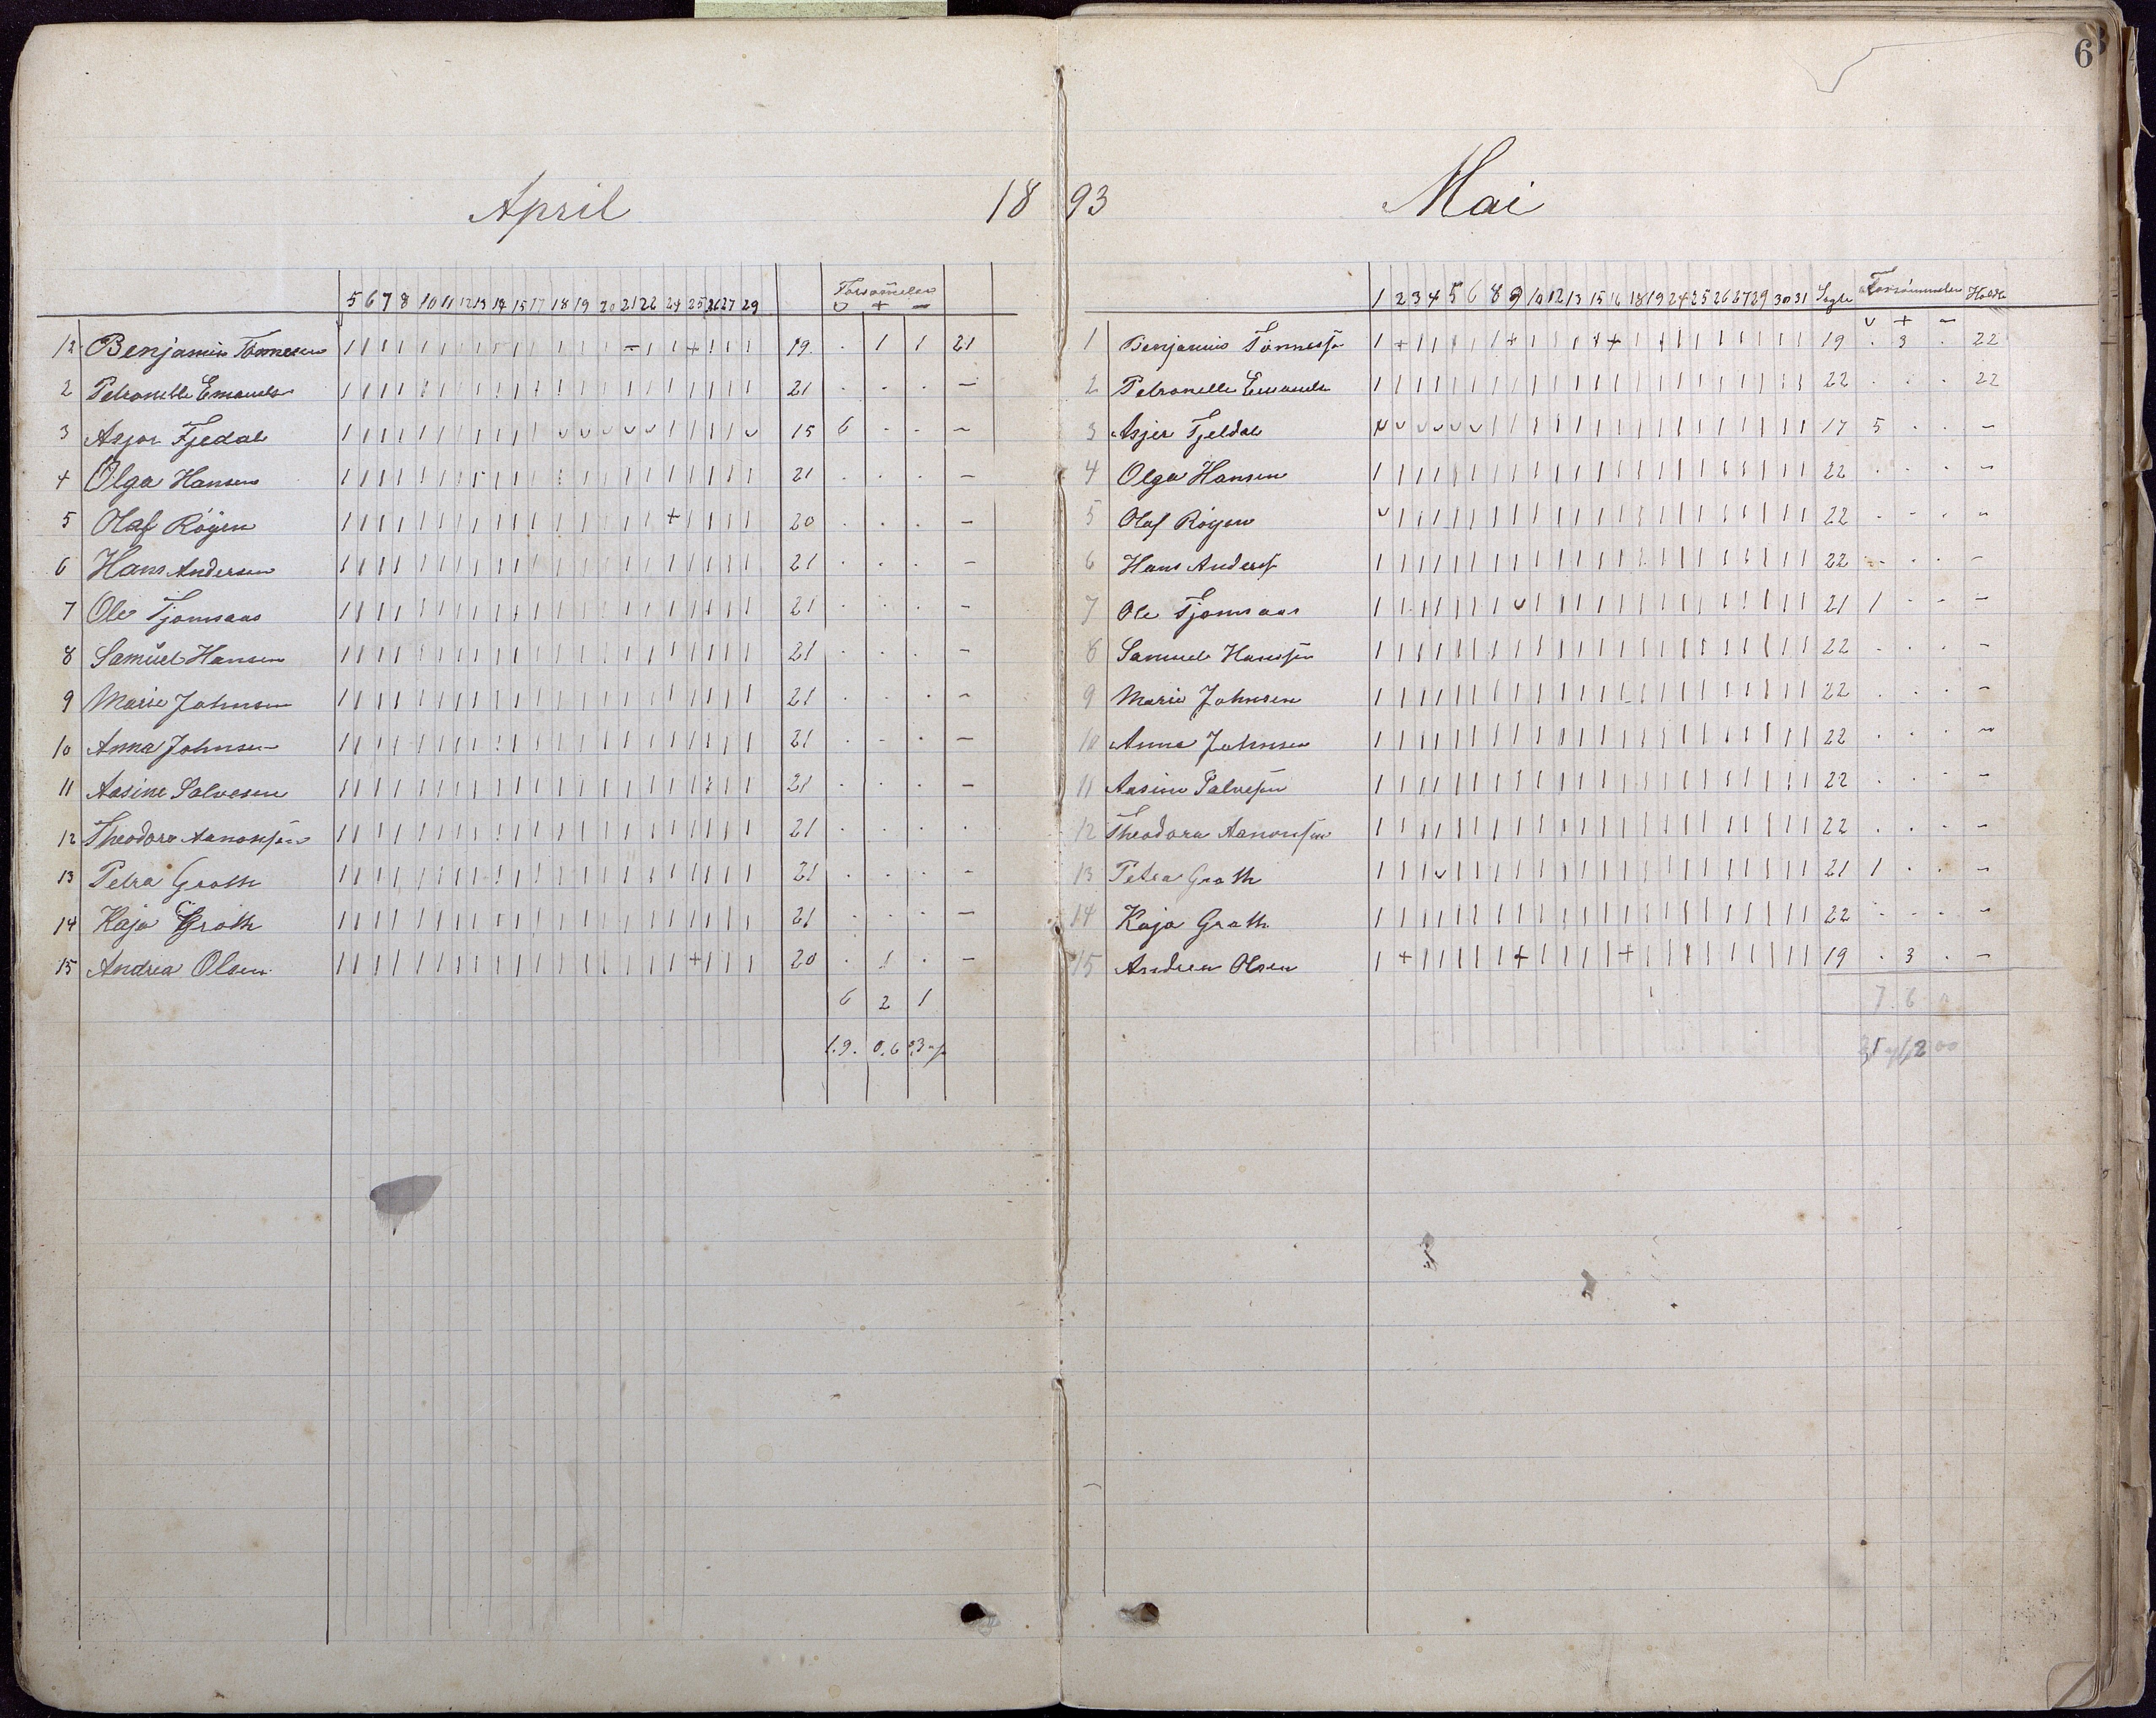 6
April 18 93 Mai
5 6 7 8 10 11 12 13 14 15 17 18 19 20 21 22 24 25 26 27 29
Forsømmelser
υ + –
12 Benjamin Tönnesen 19 . 1 1 21
2 Petronelle Emanuels 21 . . . –
3 Asjer Fjeldal 15 6 . . –
4 Olga Hansen 21 . . . –
5 Olaf Röijen 20 . . . –
6 Hans Andersen 21 . . . –
7 Ole Tjomsaas 21 . . . –
8 Samuel Hansen 21 . . . –
9 Marie Johnsen 21 . . . –
10 Anna Johnsen 21 . . . –
11 Aasine Salvesen 21 . . . –
12 Theodora Aanonsen 21 . . . .
13 Petra Groth 21 . . . –
14 Kaja Groth 21 . . . –
15 Andrea Olsen 20 . 1 . –
6 2 1
1.9. 0.6 0.3
1 2 3 4 5 6 8 9 10 12 13 15 16 18 19 24 25 26 27 29 30 31 Søgte Forsømmelser Holdte
υ + –
1 Benjamin Tönnessen 19 . 3 . 22
2 Petronelle Emanuels 22 . . . 22
3 Asjer Fjeldal 17 5 . . –
4 Olga Hansen 22 . . . –
5 Olaf Röijen 22 . . . –
6 Hans Anders 22 . . . –
7 Ole Tjomsaas 21 1 . . –
8 Samuel Hanssen 22 . . . –
9 Marie Johnsen 22 . . . –
10 Anna Johnsen 22 . . . –
11 Aasine Salvesen 22 . . . –
12 Theodora Aanonsen 22 . . . –
13 Petra Groth 21 1 . . –
14 Kaja Groth 22 . . . –
15 Andrea Olsen 19 . 3 . –
7. 6